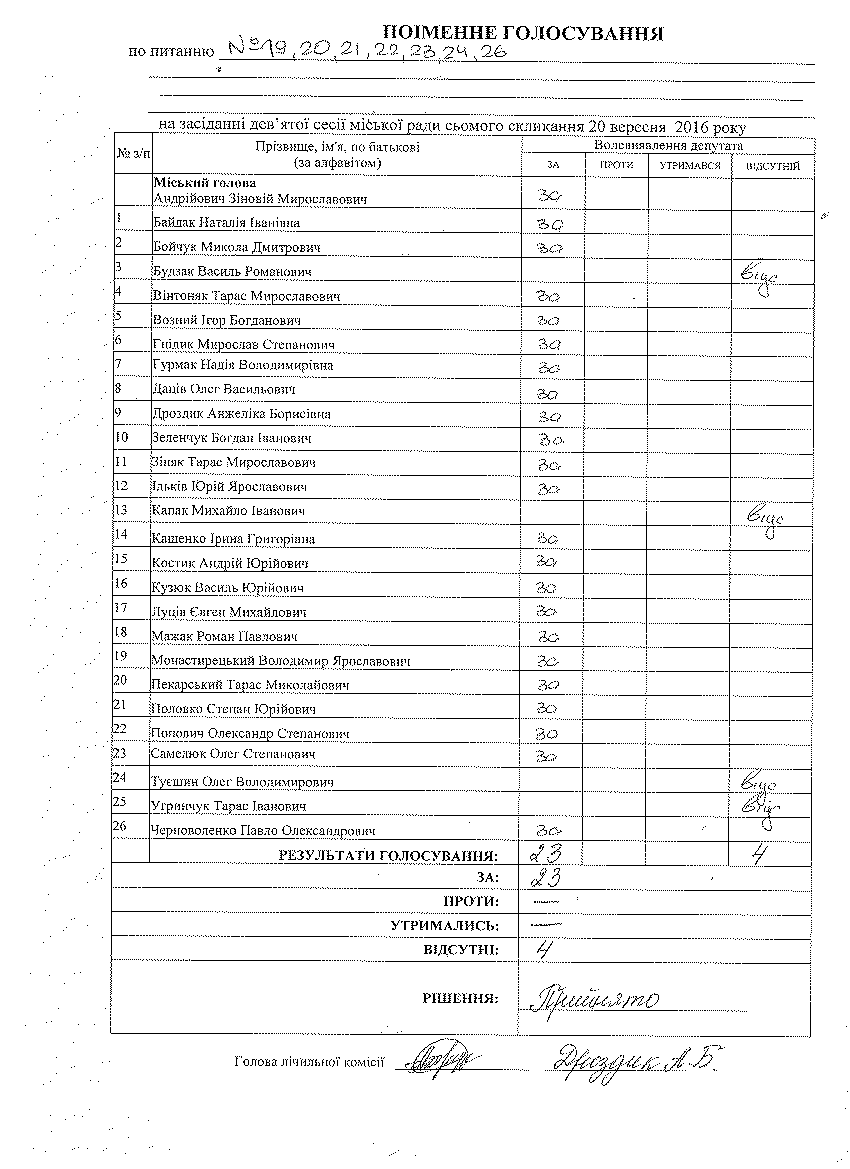 ПОІМЕННЕ ГОЛОСУВАННЯ
по питанню №19, 20, 21, 22, 23, 24, 26
на засіданні дев’ятої сесії міської ради сьомого скликання 20 вересня 2016 року
№ з/п Прізвище, ім'я, по батькові (за алфавітом) Волевиявлення депутата
ЗА ПРОТИ УТРИМАВСЯ ВІДСУТНІЙ
Міський голова
Андрійович Зіновій Мирославович За
1 Байдак Наталія Іванівна За
2 Бойчук Микола Дмитрович За
3 Будзак Василь Романович відс
4 Вінтоняк Тарас Мирославович За
5 Возний Ігор Богданович За
6 Гнідик Мирослав Степанович За
7 Гурмак Надія Володимирівна За
8 Даців Олег Васильович За
9 Дроздик Анжеліка Борисівна За
10 Зеленчук Богдан Іванович За
11 Зіняк Тарас Мирославович За
12 Ільків Юрій Ярославович За
13 Капак Михайло Іванович відс
14 Кашенко Ірина Григорівна За
15 Костик Андрій Юрійович За
16 Кузюк Василь Юрійович За
17 Луців Євген Михайлович За
18 Мажак Роман Павлович За
19 Монастирецький Володимир Ярославович За
20 Пекарський Тарас Миколайович За
21 Половко Степан Юрійович За
22 Попович Олександр Степанович За
23 Самелюк Олег Степанович За
24 Туєшин Олег Володимирович відс
25 Угринчук Тарас Іванович відс
26 Черноволенко Павло Олександрович За
РЕЗУЛЬТАТИ ГОЛОСУВАННЯ: 23 4
ЗА: 23
ПРОТИ: —
УТРИМАЛИСЬ: —
ВІДСУТНІ: 4
РІШЕННЯ: Прийнято
Голова лічильної комісії Дроздик А.Б.